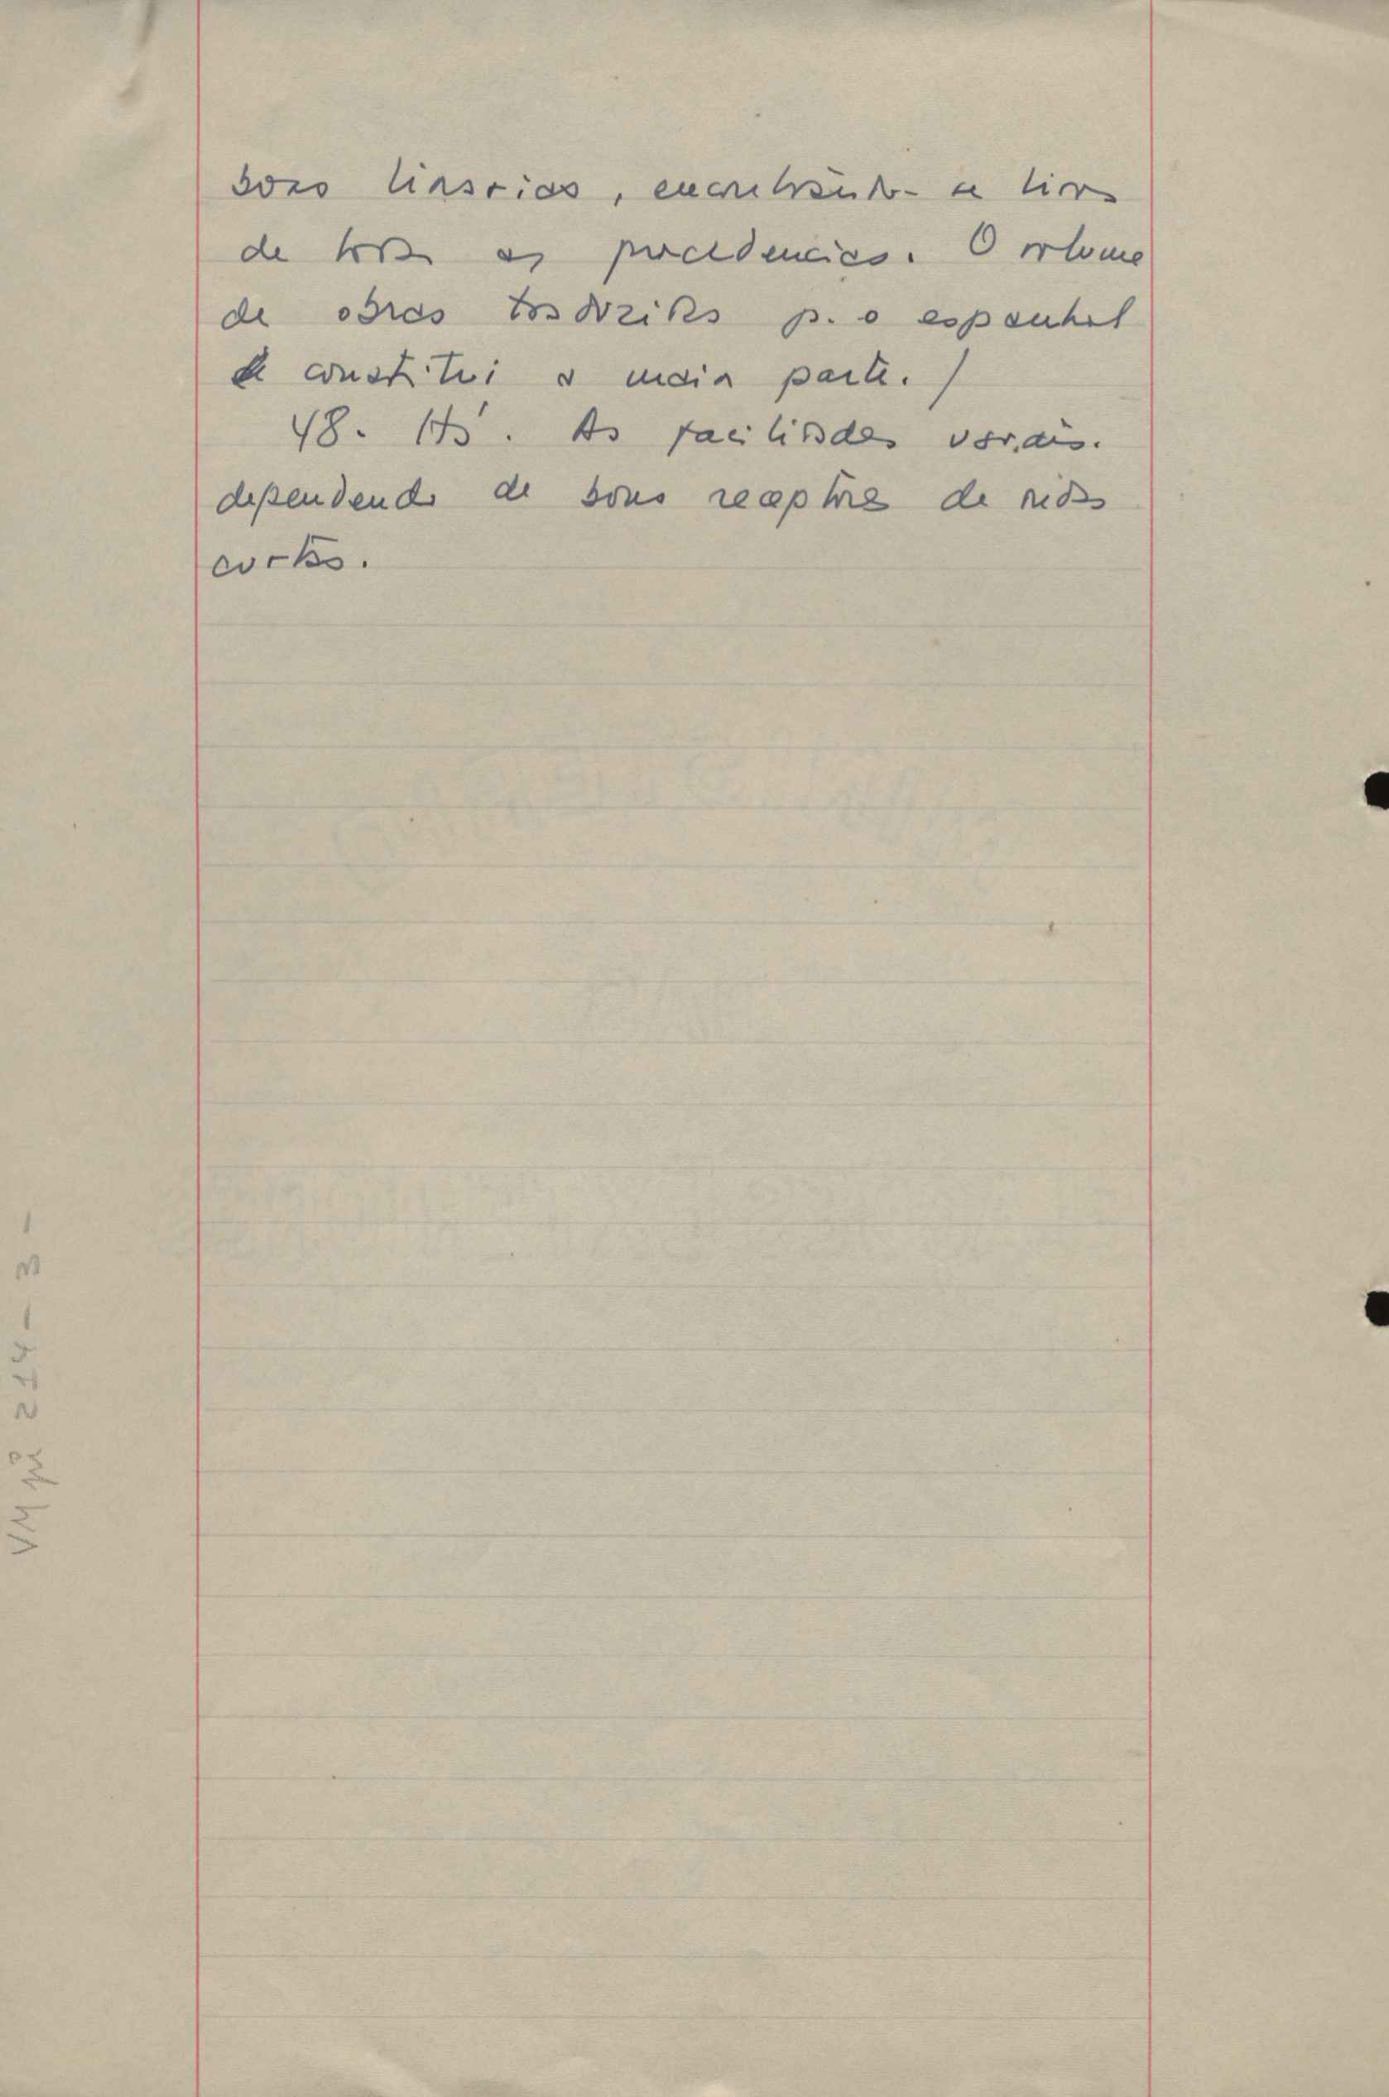 boas livrarias, encontrando-se livros
de todas as procedencias. O volume
de obras traduzidas p. o espanhol
constitui a maior parte. /
48. Há. As facilidades são
dependendo de bons receptores de ondas
curtas.
VM pi 214-3-